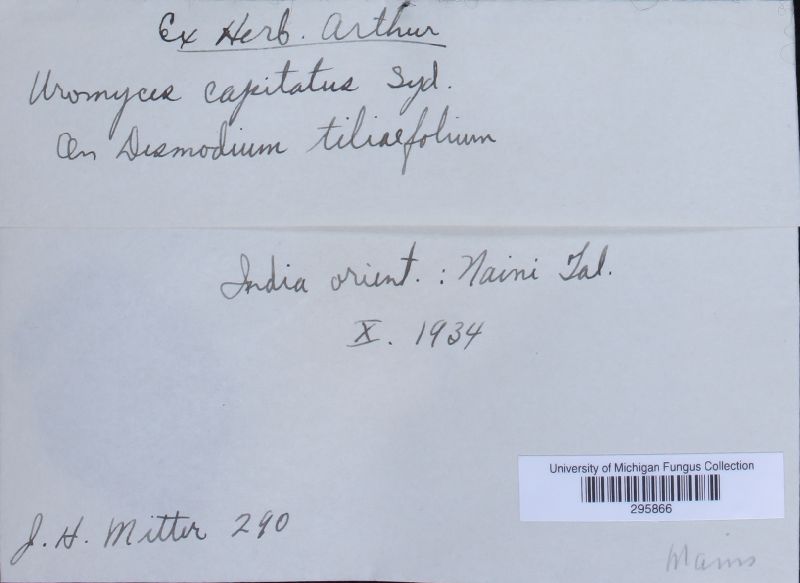 Ex Herb. Arthur
Uromyces capitatus Syd.
On Desmodium tiliaefolium
India orient. : Naini Tal.
X. 1934
University of Michigan Fungus Collection
295866
J. H. Mitter 290
Mains